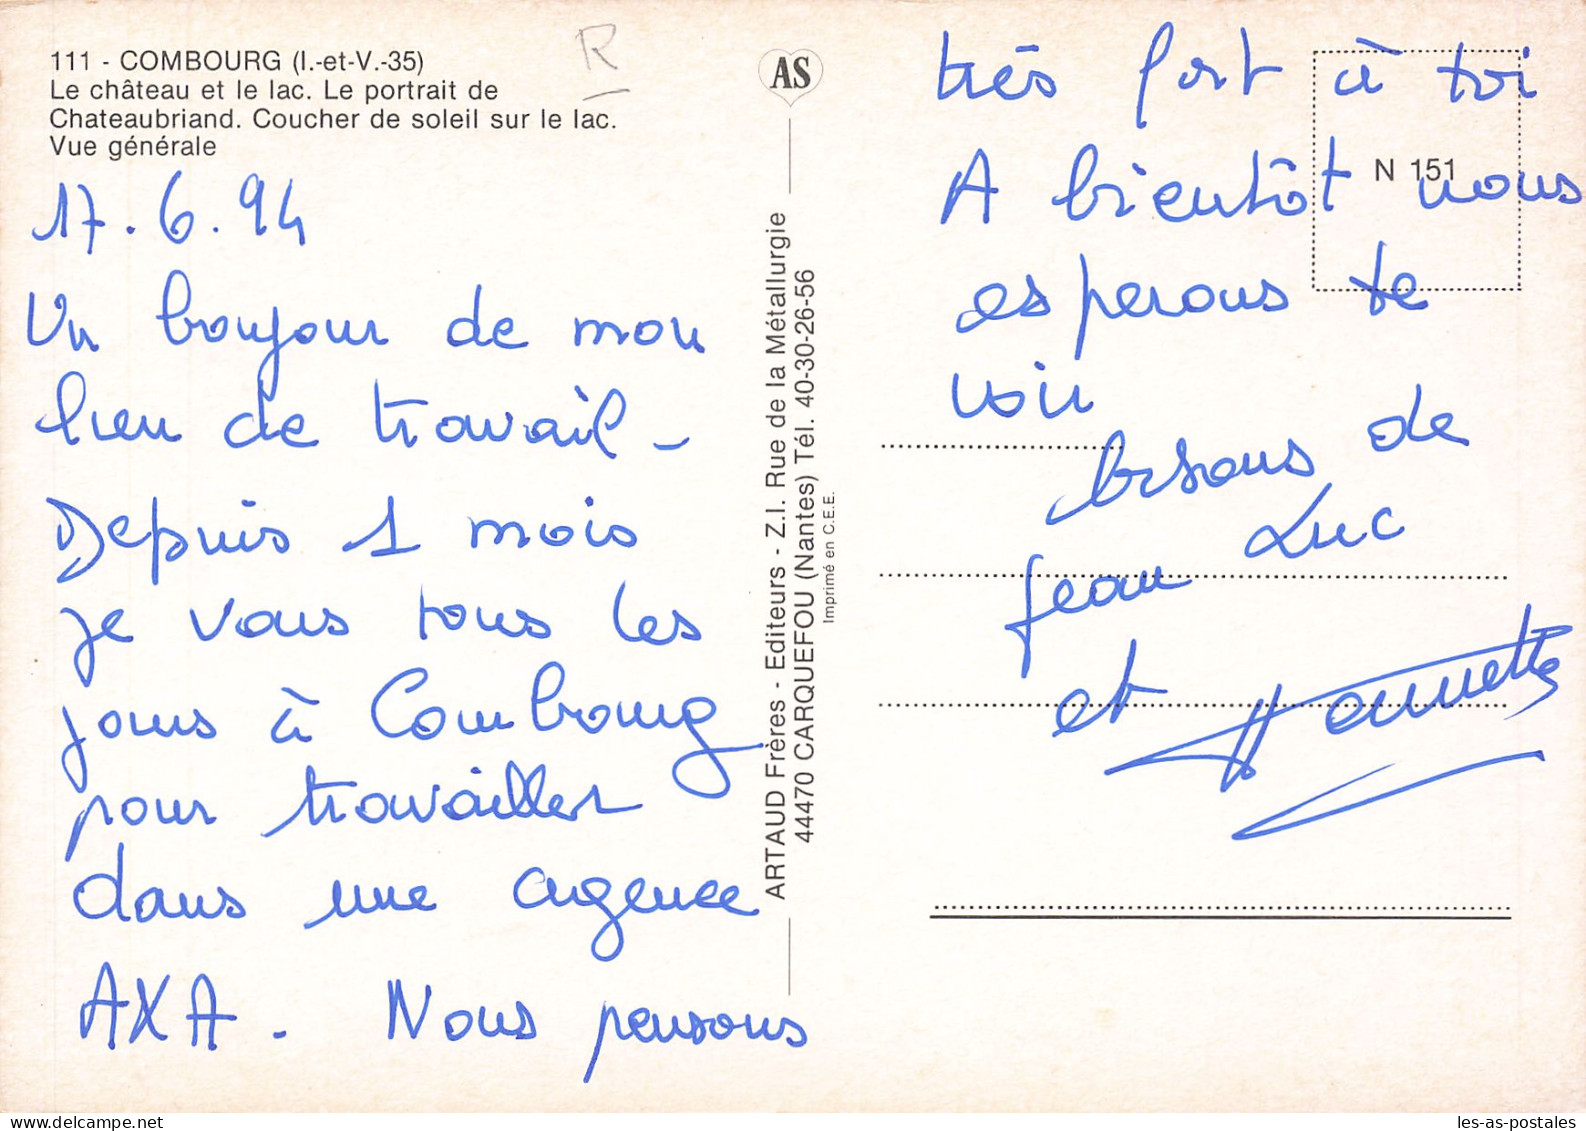 111 - COMBOURG (I.-et-V.-35)
Le château et le lac. Le portrait de
Chateaubriand. Coucher de soleil sur le lac.
Vue générale
R
17.6.94
Un bonjour de mon
lieu de travail -
Depuis 1 mois
je vous tous les
jours à Combourg
pour travailler
dans une agence
AXA. Nous pensons
AS
ARTAUD Frères - Editeurs - Z.I. Rue de la Métallurgie
44470 CARQUEFOU (Nantes) Tél. 40-30-26-56
Imprimé en C.E.E.
N 151
très fort à toi
A bientôt nous
esperons te
voir
bisous de
Jean Luc
et
delcampe.net
les-as-postales